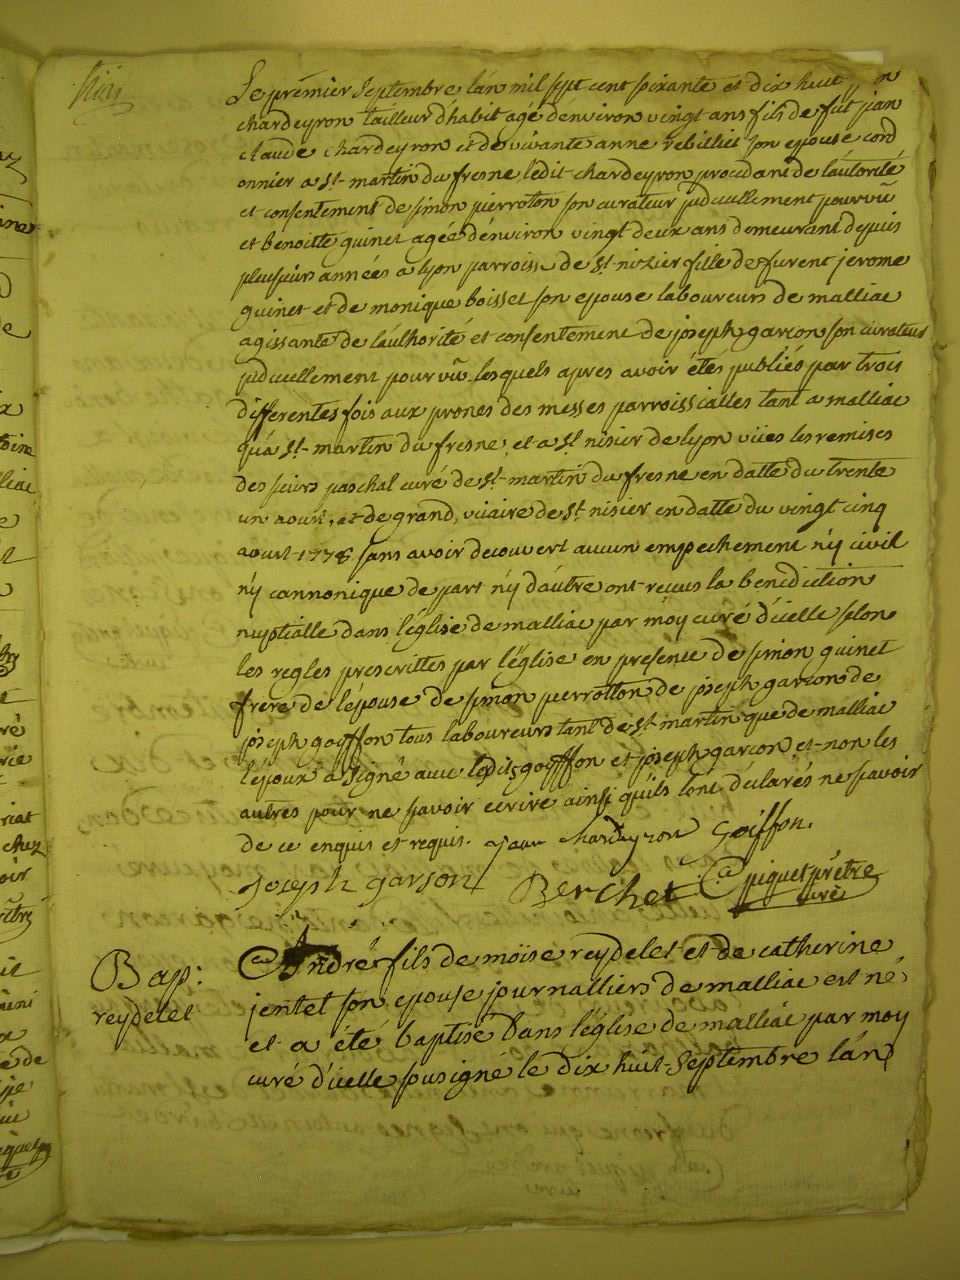 Le premier septembre lán mil sept cent soixante et dix huit jan
chardeyron tailleur d'habit agé dénviron vingt ans fils de fut jan
claude chardeyron et de vivante anne rebilliet son epouse cord
onnier a St martin du fresne ledit chardeyron procedant de láutorité
et consentement de simon pierroton son curateur judiciellement pourvû
et benoitte guinet agée dénviron vingt deux ans demeurant depuis
plusieurs années a lyon parroisse de St nizier fille de furent jerome
guinet et de monique boisset son epouse laboureurs de malliac
agissante de láuthorité et consentement de joseph garcon son curateur
judiciellement pourvû lesquels apres avoir étés publiés par trois
differentes fois aux prones des messes parroissialles tant a malliac
quá St martin du fresne, et a St nisier de lyon vües les remises
des sieurs paschal curé de St martin du fresne en datte du trente
un aoust, et de grand, viiaire de St nisier en datte du vingt cinq
aoust 1778 sans avoir decouvert aucun empechement n'ÿ civil
n'ÿ cannonique de part n'ÿ dáutre ont reçus la benediction
nuptialle dans l'église de malliac par möy curé d'icelle selon
les regles prescrittes par l'église en présence de simon guinet
frere de l'épouse de simon pierrotton de joseph garcon de
joseph goiffon tous laboureurs tant de St martin que de malliac
l'époux a signé avec lesdits goiffon et joseph garcon et non les
autres pour ne sçavoir écrire ainsi quils lont déclarés ne sçavoir
de ce enquis et requis. jean chardeyron Goiffon.
Joseph garson Berchet piquet prêtre
curé
Bap: André fils de moise reydelet et de catherine
reydelet jentet son epouse journalliers de malliac est né
et a été baptisé dans l'église de malliac par moy
curé d'icelle sousigné le dix hüit septembre lán